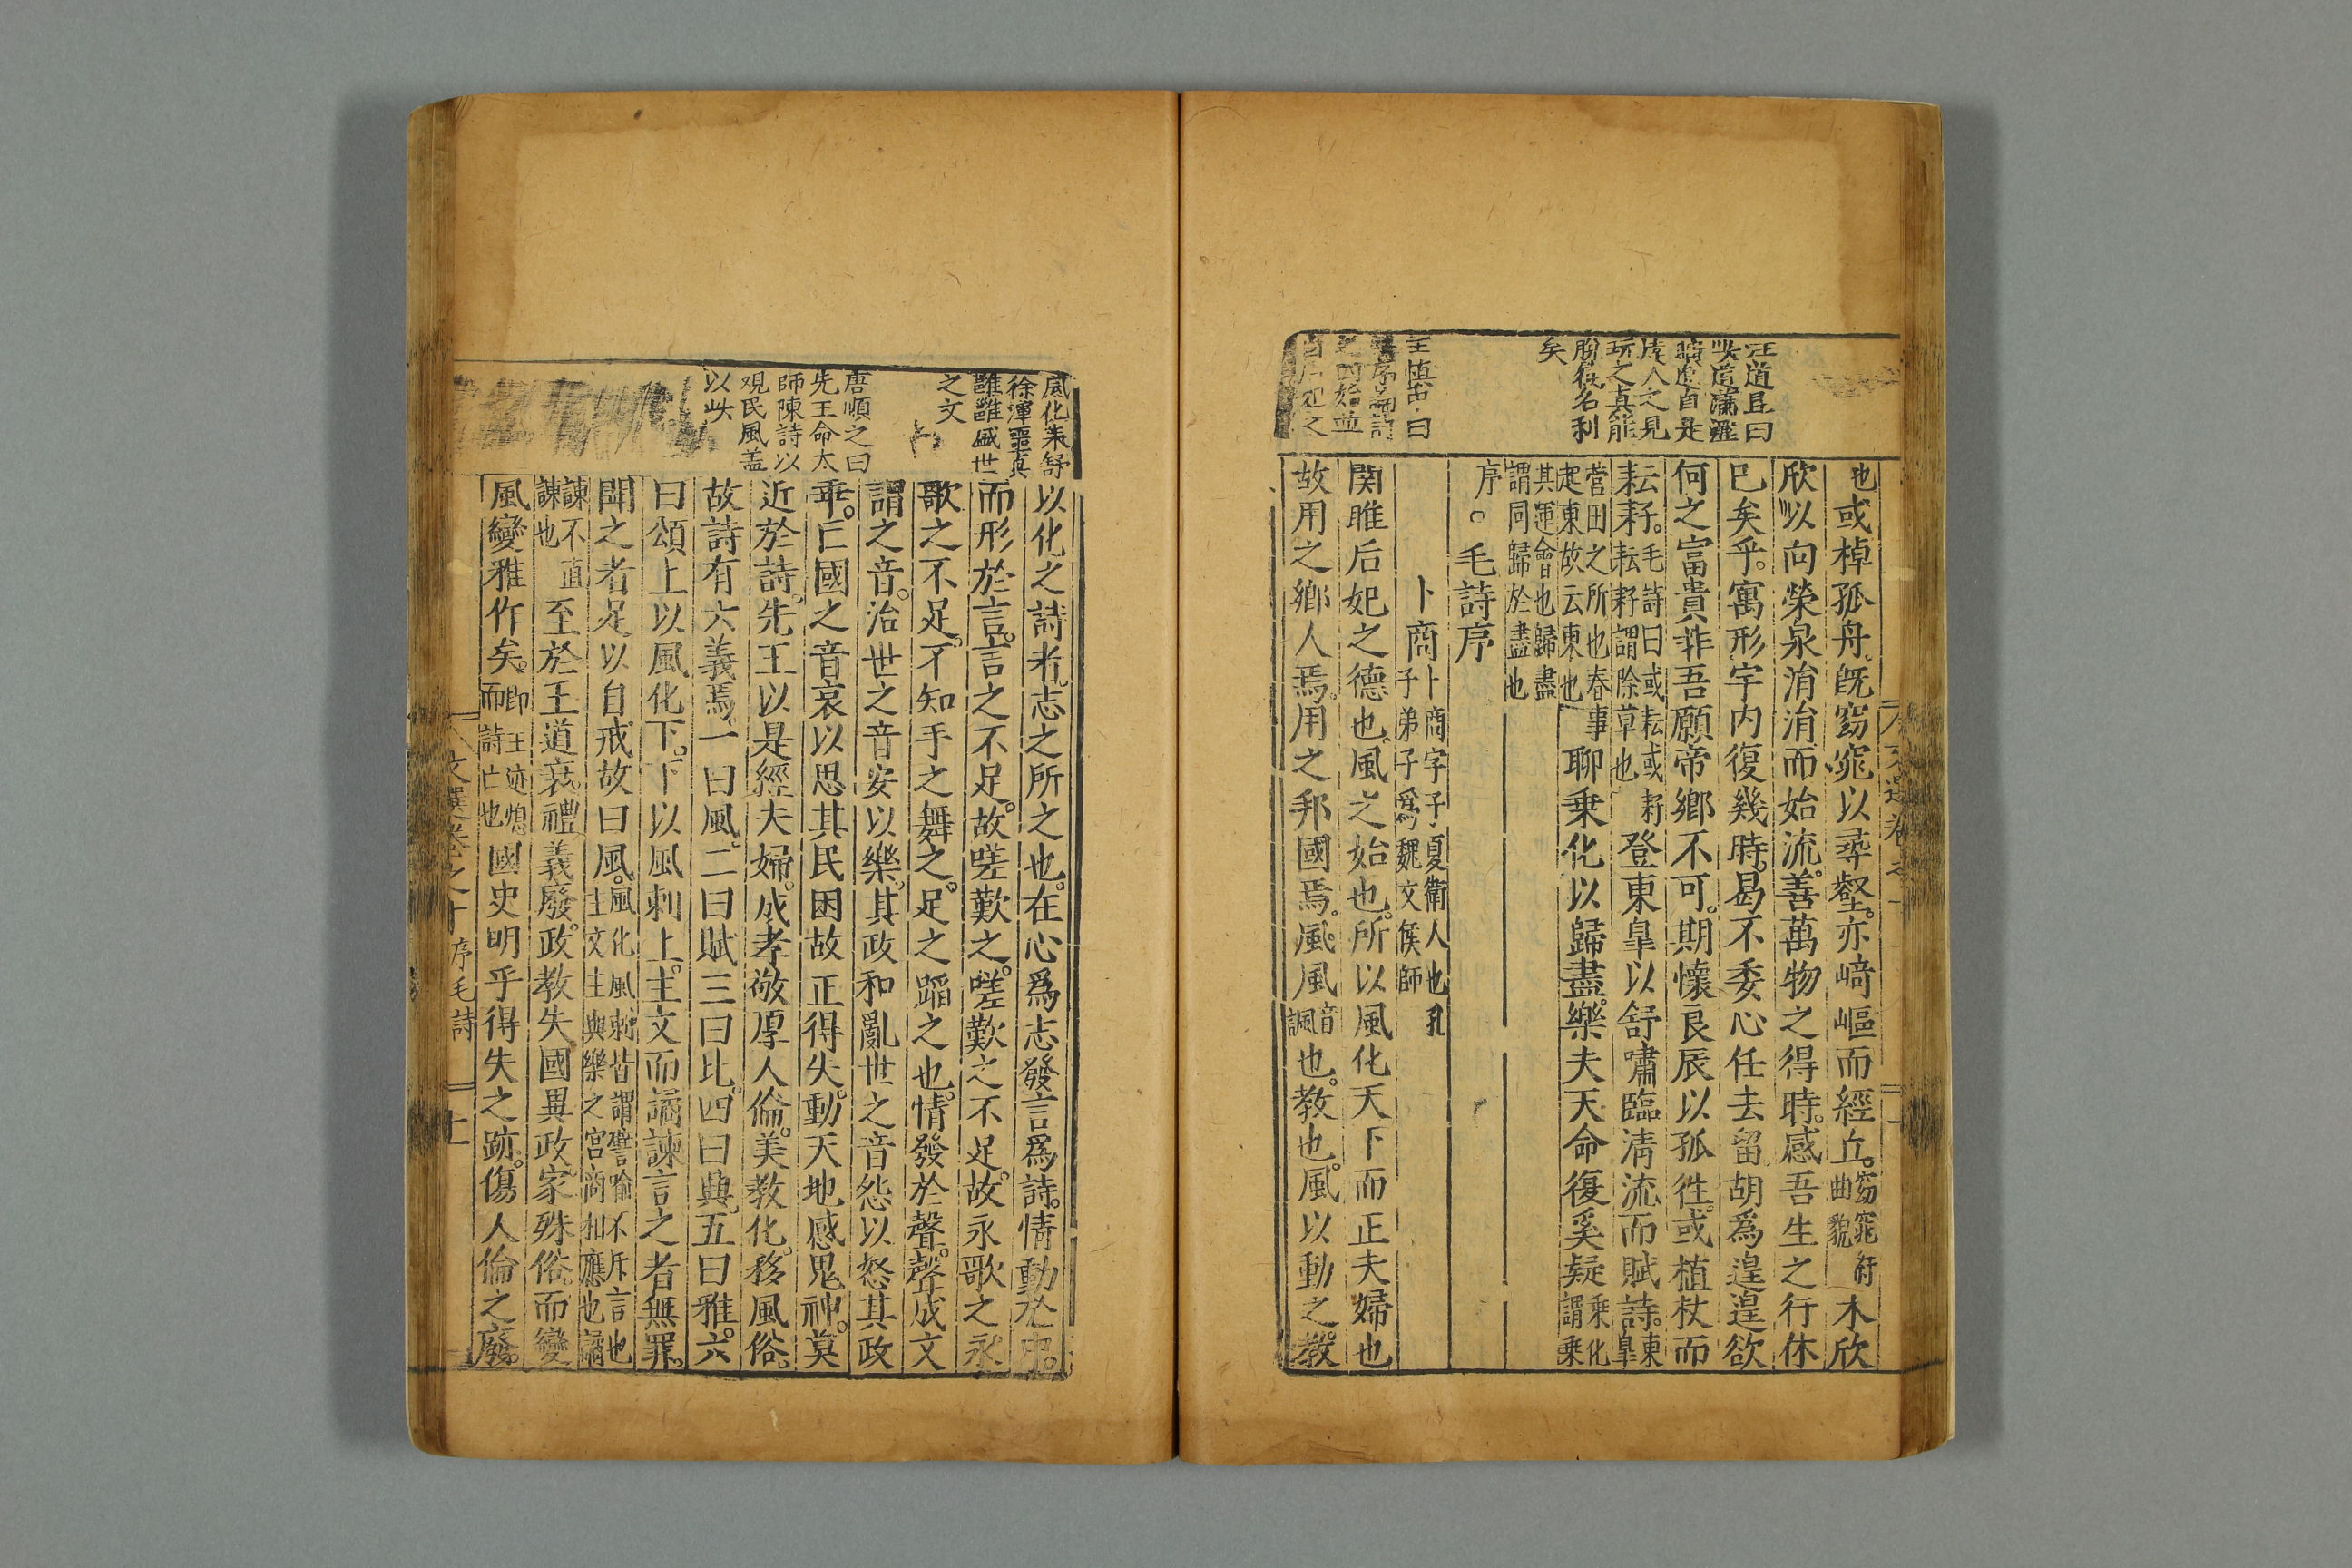 汪道昆曰
此處瀟灑
曠遠自是
達人之見
玩之真能
胸祛名利
矣
王慎中曰
序論詩
之四始並
也或棹孤舟既窈窕以尋壑亦崎嶇而經丘窈窕
曲貌
木欣
欣以向榮泉涓涓而始流善萬物之得時感吾生之行休
巳矣乎寓形宇内復幾時曷不委心任去留胡爲遑遑欲
何之富貴非吾願帝鄉不可期懷良辰以孤徃或植杖而
耘耔毛詩曰或耘或耔
耘耔謂除草也
登東臯以舒嘯臨清流而賦詩東
臯
營田之所也春事
起東故云東也
聊乗化以歸盡樂夫天命復奚疑乗化
謂乗
其運會也歸盡
謂同歸於盡也
序。
毛詩序
卜商卜商字子夏衛人也孔
子弟子爲魏文侯師
関雎后妃之德也風之始也所以風化天下而正夫婦也
故用之鄉人焉用之邦國焉風風音
諷
也教也風以動之教
風化表舒
徐渾噩真
雝雝盛世
之文
唐順之曰
先王命太
師陳詩以
观民風盖
以此
以化之詩者志之所之也在心爲志發言爲詩情動於中
而形於言言之不足故嗟歎之嗟歎之不足故永歌之永
歌之不足不知手之舞之足之蹈之也情發於聲聲成文
謂之音治世之音安以樂其政和亂世之音怨以怒其政
乖亡國之音哀以思其民困故正得失動天地感鬼神莫
近於詩先王以是經夫婦成孝敬厚人倫美教化移風俗
故詩有六義焉一曰風二曰賦三曰比四曰興五曰雅六
曰頌上以風化下下以風刺上主文而譎諫言之者無罪
聞之者足以自戒故曰風風化風刺皆謂譬喻不斥言也
主文主與樂之宮商相應也譎
諫不直
諫也
至於王道衰禮義廢政教失國異政家殊俗而變
風變雅作矣即王迹熄
而詩亡也
國史明乎得失之跡傷人倫之廢
文選卷之十 序毛詩 十一